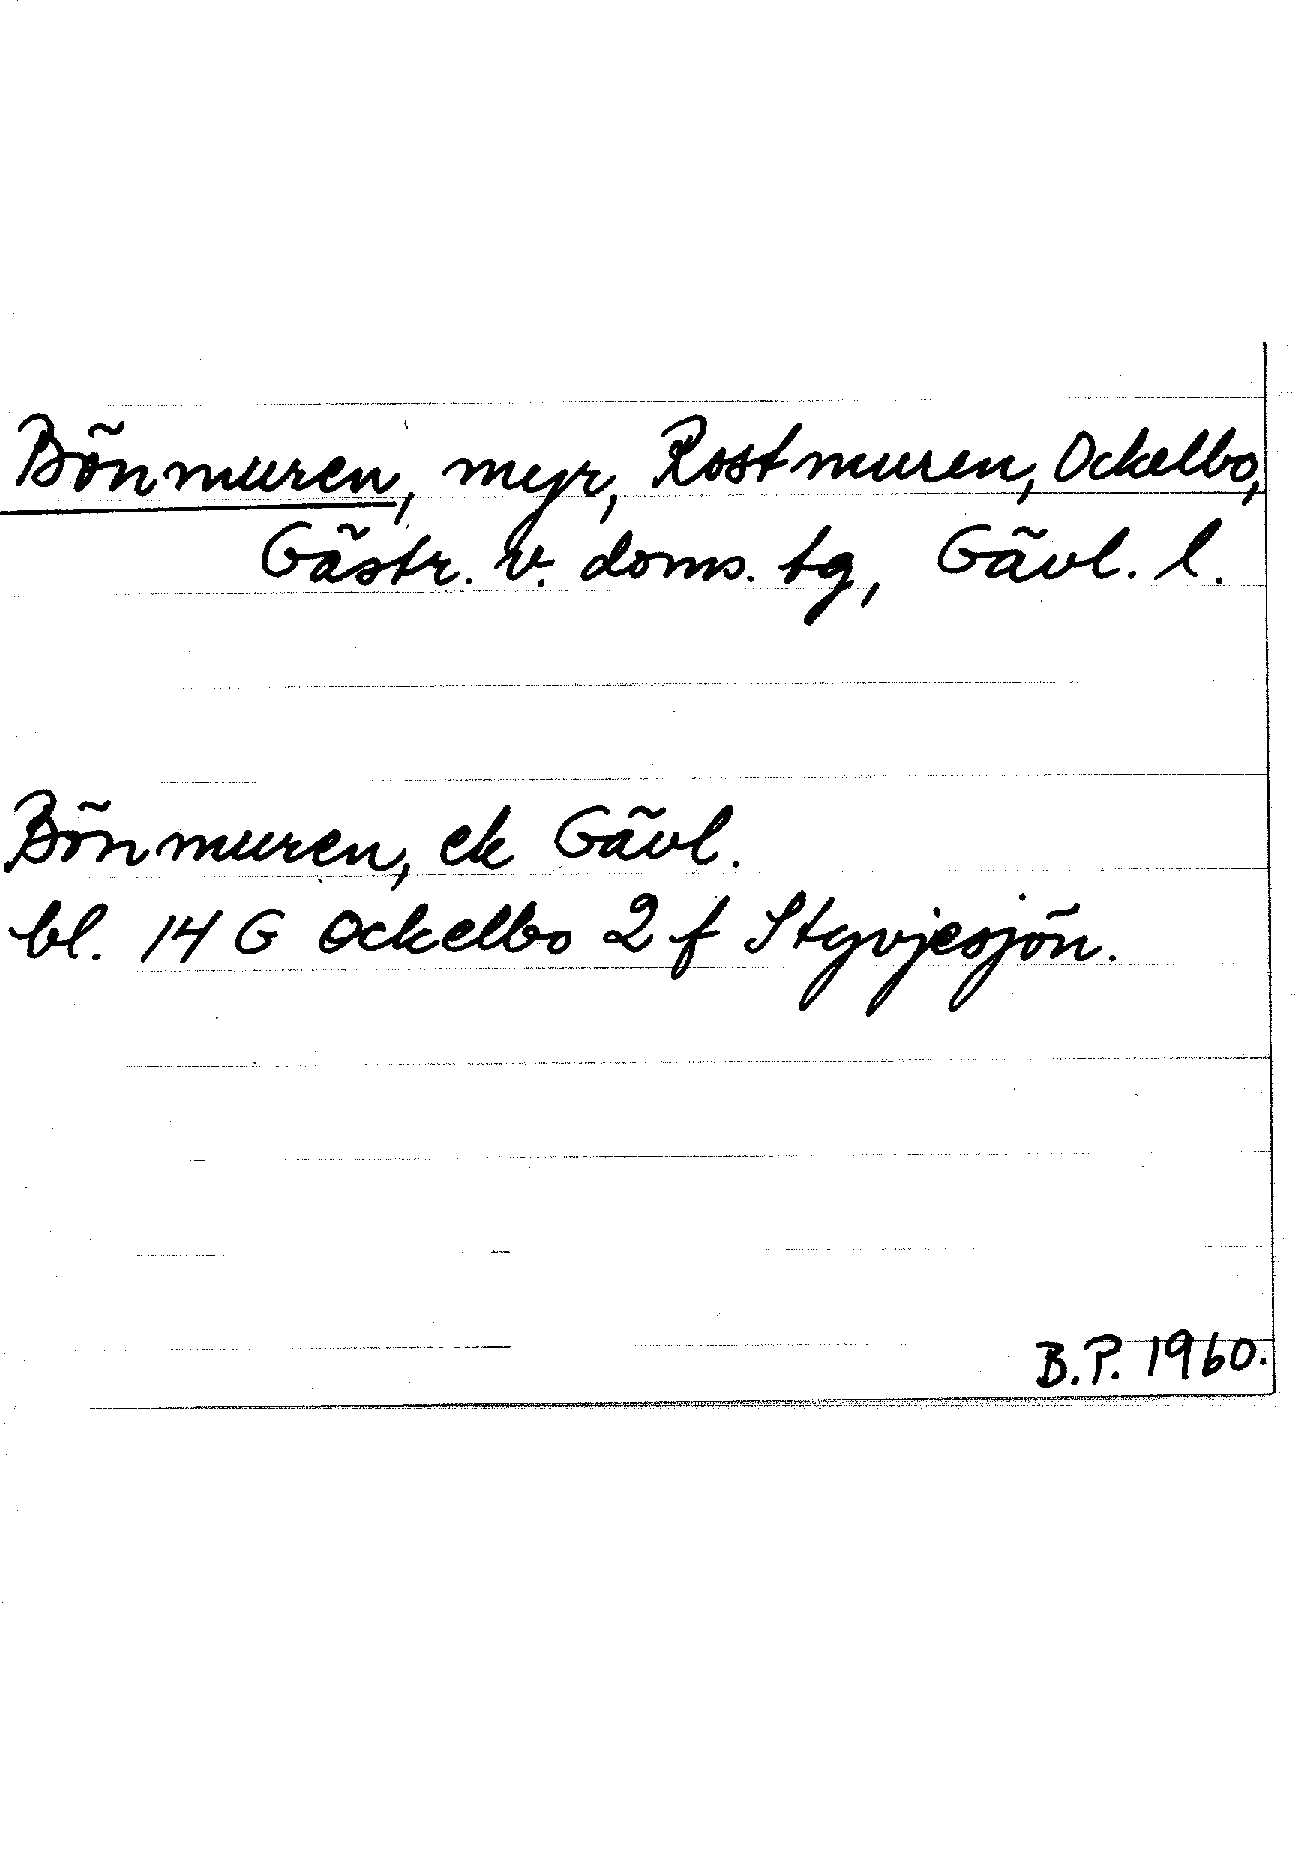 Bönmuren, myr, Rostmuren, Ockelbo,
Gästr. v. doms. tg, Gävl. l.
Bönmuren, ek Gävl.
bl. 14 G Ockelbo 2 f Styvjesjön.
B.P. 1960.